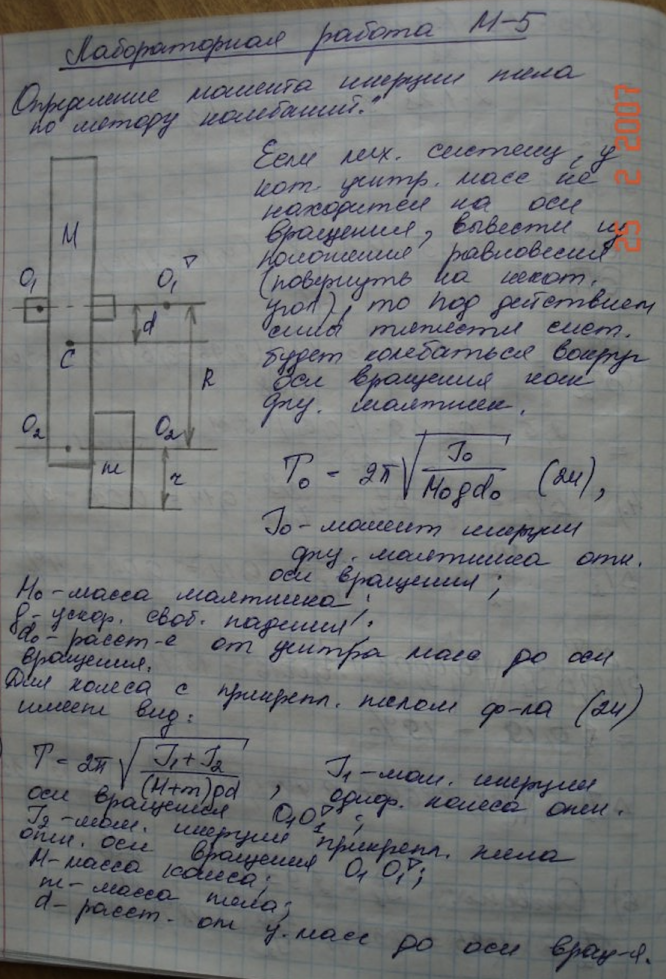 Лабораторная работа М-5
Определение момента инерции тела
по методу колебаний."
Если мех. систему, у
кот. центр. масс не
находится на оси
вращения, вывести из
положения равновесия
(повернуть на некот.
угол), то под действием
силы тяжести сист.
будет колебаться вокруг
оси вращения как
физ. маятник.
M
O₁
O₁'
d
C
R
O₂
O₂
m
r
T₀ = 2π√(J₀/(M₀gd₀)) (24),
J₀ - момент инерции
физ. маятника отн.
оси вращения;
M₀ - масса маятника;
g - ускор. своб. падения;
d₀ - расст-е от центра масс до оси
вращения.
Для колеса с прикрепл. телом ф-ла (24)
имеет вид:
T = 2π√((J₁+J₂)/((M+m)gd)), J₁ - мом. инерции
однор. колеса отн.
оси вращения O₁O₁';
J₂ - мом. инерции прикрепл. тела
отн. оси вращения O₁O₁';
M - масса колеса;
m - масса тела;
d - расст. от ц. масс до оси вращ-я.
25 2 2007